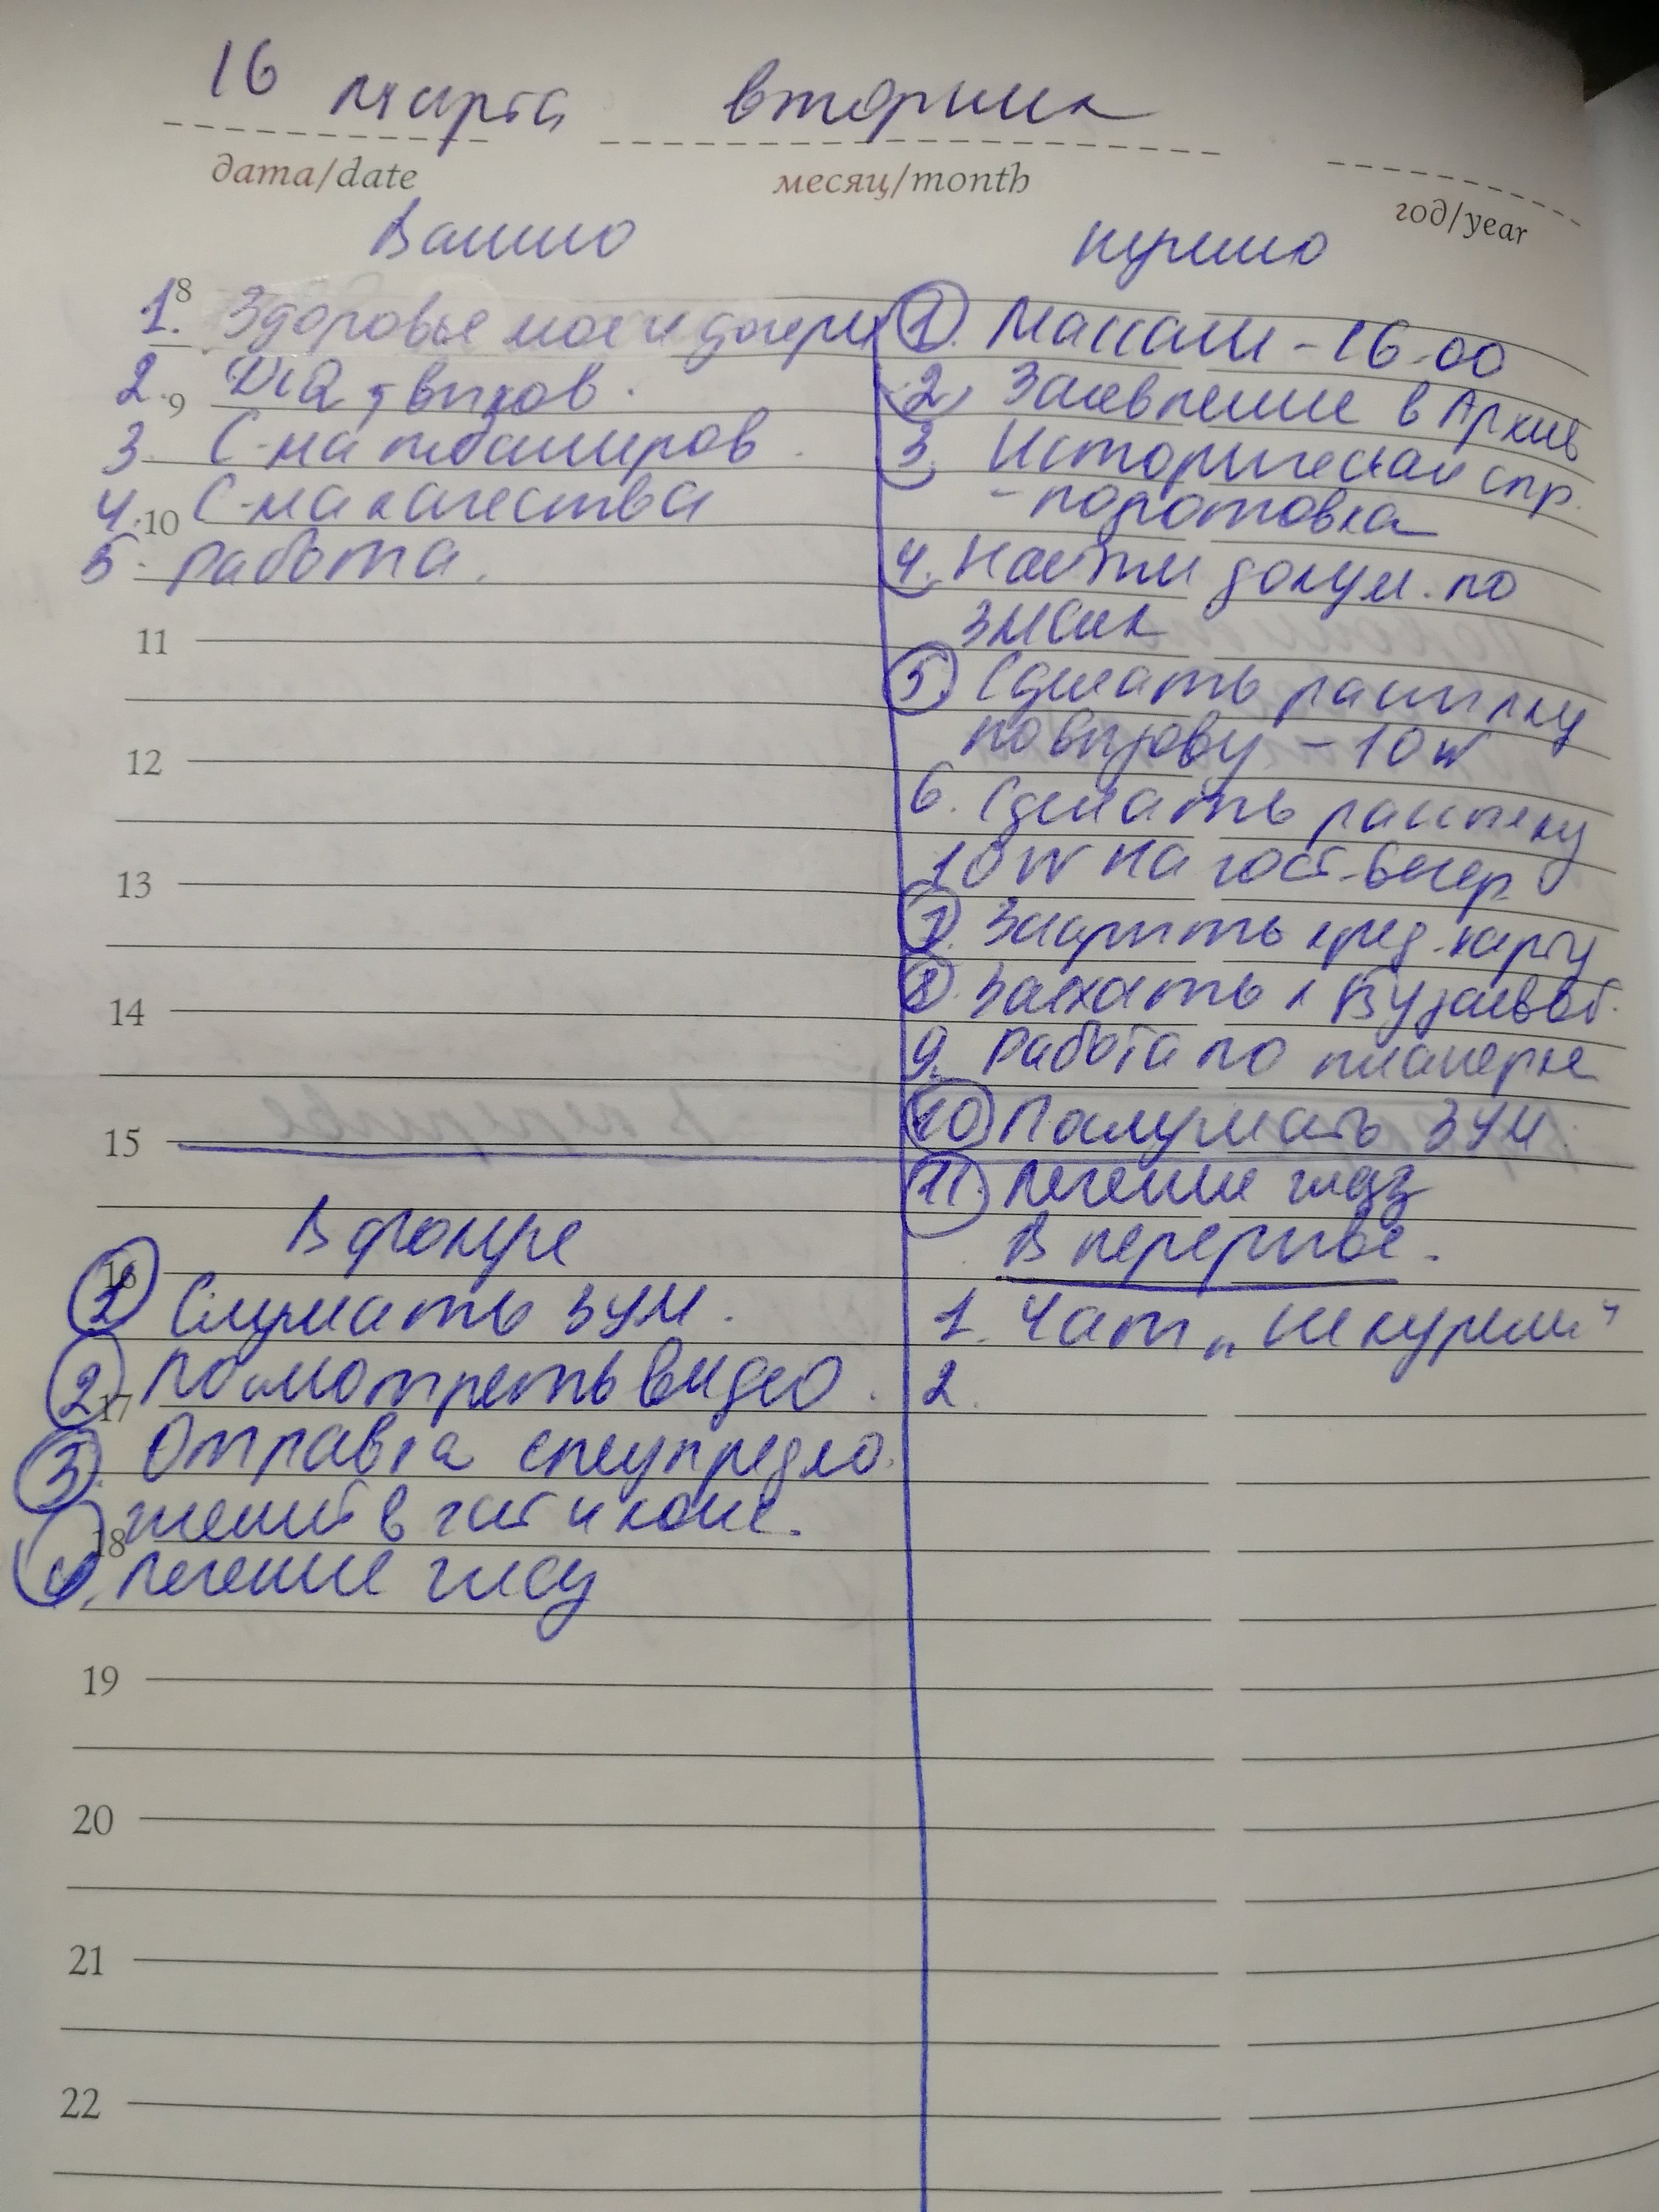 16 марта вторник
дата/date месяц/month год/year
Важно
8
1. Здоровье мое и дочери
2. вызов.
9
3. С-ма
4. С-ма качества
10
5. работа.
11
12
13
14
15
В фокусе
16
1 Слушать зум.
2 Посмотреть видео.
17
3. Отправка спецпредло-
жений в чат и конс.
18
4. лечение глаз
19
20
21
22
нужно
1. Массаж - 16-00
2. Заявление в Архив
3. Историческая спр.
- подготовка
4. Найти докум. по
5. Сделать рассылку
по вызову - 10 w
6. Сделать рассылку
10 w на гост. вечер
7. Закрыть кред. карту
8. Заехать к
9. Работа по планерке
10 Послушать зум.
11. Лечение глаз
В перерыве.
1. Чат „не курим"
2.